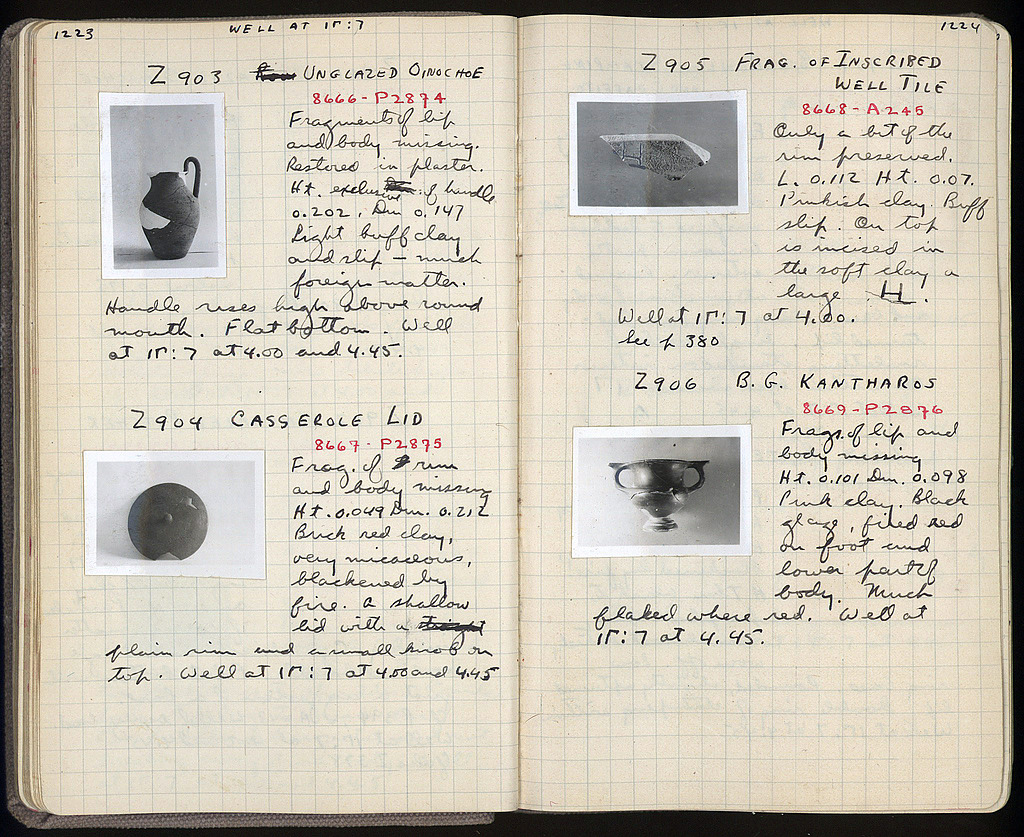 1223
WELL AT 1Γ:7
Z 903 UNGLAZED OINOCHOE
8666-P2874
Fragments of lip
and body missing.
Restored in plaster.
Ht. exclusive of handle
0.202, Dm 0.147
Light buff clay
and slip – much
foreign matter.
Handle rises high above round
mouth. Flat bottom. Well
at 1Γ:7 at 4.00 and 4.45.
Z 904 CASSEROLE LID
8667-P2875
Frag. of rim
and body missing
Ht. 0.049 Dm. 0.212
Brick red clay,
very micaceous,
blackened by
fire. A shallow
lid with a
plain rim and a small knob on
top. Well at 1Γ:7 at 4.00 and 4.45
1224
Z 905 FRAG. OF INSCRIBED
WELL TILE
8668-A245
Only a bit of the
rim preserved.
L. 0.112 Ht. 0.07.
Pinkish clay. Buff
slip. On top
is incised in
the soft clay a
large H.
Well at 1Γ:7 at 4.00.
See p 380
Z 906 B.G. KANTHAROS
8669-P2876
Frags. of lip and
body missing
Ht. 0.101 Dm. 0.098
Pink clay. Black
glaze, fired red
on foot and
lower part of
body. Much
flaked where red. Well at
1Γ:7 at 4.45.